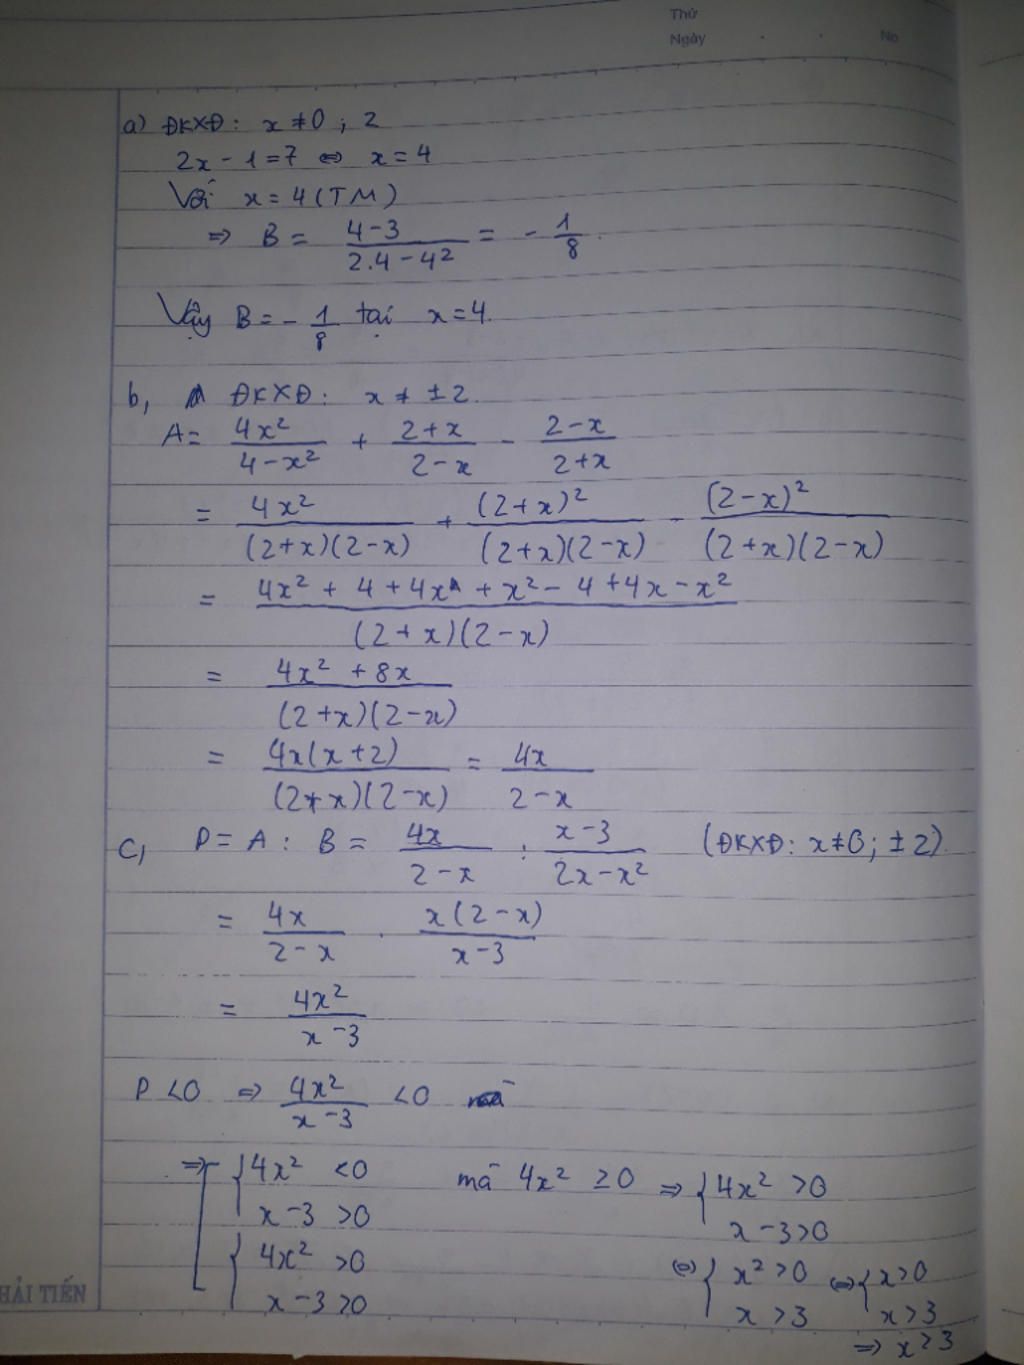 Thứ
Ngày No
a) ĐKXĐ: x ≠ 0 ; 2
2x - 1 = 7 ⇔ x = 4
Với x = 4 (TM)
⇒ B = (4-3)/(2.4 - 4²) = - 1/8.
Vậy B = - 1/8 tại x = 4.
b, ĐKXĐ: x ≠ ±2.
A = 4x²/(4-x²) + (2+x)/(2-x) - (2-x)/(2+x)
= 4x²/((2+x)(2-x)) + (2+x)²/((2+x)(2-x)) - (2-x)²/((2+x)(2-x))
= (4x² + 4 + 4x + x² - 4 + 4x - x²)/((2+x)(2-x))
= (4x² + 8x)/((2+x)(2-x))
= 4x(x+2)/((2+x)(2-x)) = 4x/(2-x)
c, P = A : B = 4x/(2-x) : (x-3)/(2x-x²) (ĐKXĐ: x ≠ 0; ±2).
= 4x/(2-x) . x(2-x)/(x-3)
= 4x²/(x-3)
P < 0 ⇒ 4x²/(x-3) < 0
⇒ [ { 4x² < 0 mà 4x² ≥ 0 ⇒ { 4x² > 0
x - 3 > 0 x - 3 > 0
{ 4x² > 0 ⇔ { x² > 0 ⇔ { x > 0
x - 3 > 0 x > 3 x > 3
⇒ x > 3
HẢI TIẾN